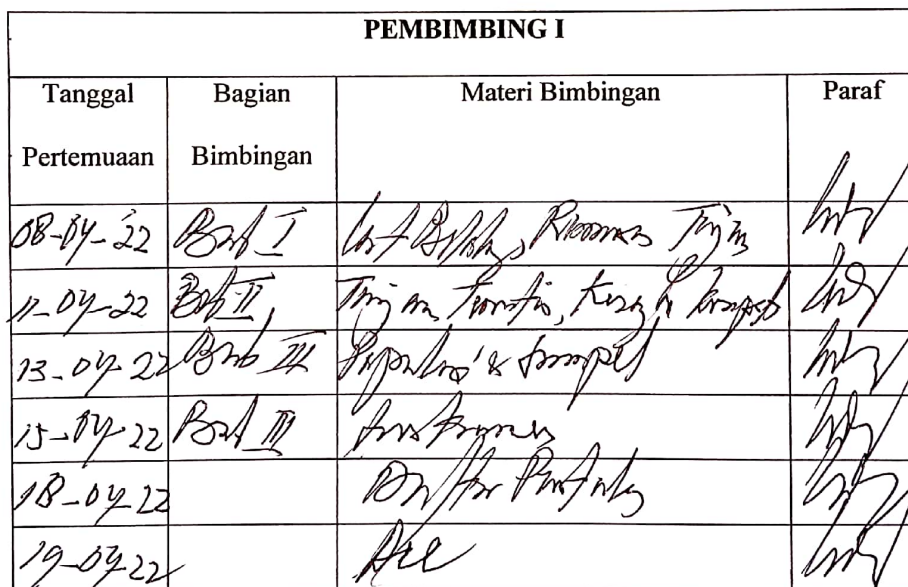 PEMBIMBING I
Tanggal Pertemuaan Bagian Bimbingan Materi Bimbingan Paraf
08-04-22 Bab I Latar Belakang, Rumusan Tujuan
11-04-22 Bab II Tinjauan Teoritis, Kerangka Konsep
13-04-22 Bab III Populasi & Sampel
15-04-22 Bab III Instrumen
18-04-22 Daftar Pustaka
19-04-22 Acc